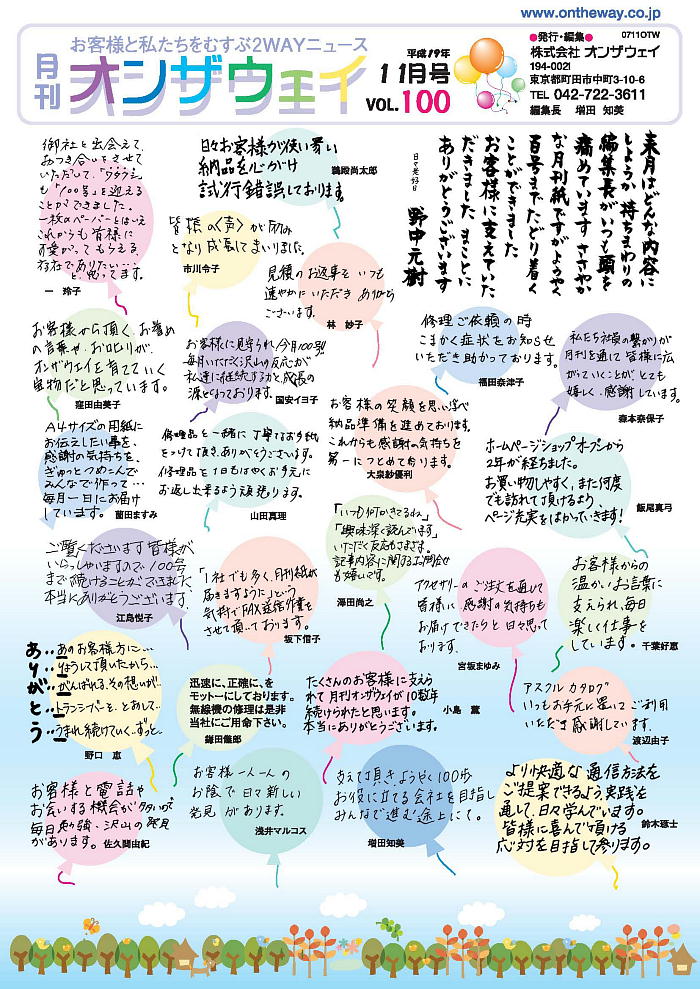 www.ontheway.co.jp
お客様と私たちをむすぶ2WAYニュース
月刊
オンザウェイ
平成19年
11月号
VOL.100
●発行・編集●
0711OTW
株式会社 オンザウェイ
194-0021
東京都町田市中町3-10-6
TEL 042-722-3611
編集長 増田 知美
来月はどんな内容に
しようか 持ちまわりの
編集長がいつも頭を
痛めています ささやか
な月刊紙ですがようやく
百号までたどり着く
ことができました
お客様に支えていた
だきました まことに
ありがとうございます
日々是好日
野中元樹
日々お客様が使い易い
納品を心がけ
試行錯誤しております。
鵜殿尚太郎
御社と出会えて、
おつき合いをさせて
いただいて、「ウラウラ」も
「100号」を迎える
ことができました。
一枚のペーパーとはいえ
これからも皆様に
可愛がってもらえる、
存在でありたい……
と、思ってます。
一 玲子
皆様の〈声〉が励み
となり成長してまいりました。
市川令子
見積のお返事を いつも
速やかにいただき ありがとう
ございます。
林 妙子
お客様から頂く、お誉め
の言葉や、お叱りが、
オンザウェイを育てていく
宝物だと思っています。
窪田由美子
お客様に見守られ、今月100号!!
毎月いただく沢山の反応が
私達に継続する力と、成長の
源となっております。
国安イヨ子
修理ご依頼の時
こまかく症状をお知らせ
いただき助かっております。
福田奈津子
私たち社員の繋がりが
月刊を通じて皆様に広
がっていくことが とても
嬉しく、感謝しています。
森本奈保子
お客様の笑顔を思い浮べ
納品準備を進めております。
これからも感謝の気持ちを
第一につとめて参ります。
大泉紗優利
A4サイズの用紙に
お伝えしたい事を、
感謝の気持ちを、
ぎゅっとつめこんで
みんなで作って…
毎月一日にお届け
しています。
薗田ますみ
修理品と一緒に丁寧なお手紙
をつけて頂き、ありがとうございます。
修理品を1日もはやくお手元に
お返し出来るよう頑張ります。
山田真理
ホームページショップオープンから
2年が経ちました。
お買い物しやすく、また何度
でも訪れて頂けるよう
ページ充実をはかっていきます!
飯尾真弓
ご覧くださいます皆様が
いらっしゃいますので、100号
まで続けることができました
本当にありがとうございます。
江島悦子
「1社でも多く、月刊紙が
届きますように」という
気持でFAX送信作業を
させて頂いております。
坂下信子
「いつも何か書いてるね」
「興味深く読んでいます」
いただく反応もさまざま。
記事内容に関するお問合せ
も嬉しいです。
澤田尚之
アクセサリーのご注文を通じて
皆様に 感謝の気持ちも
お届けできたらと日々思って
おります。
宮坂まゆみ
お客様からの
温かいお言葉に
支えられ、毎日
楽しく仕事を
しています。
千葉好恵
あ…あのお客様方に…
り…りょうして頂いたから…
が…がんばれる、その想いが…
と…トランシーバーを、とおして…
う…うまれ続けていく…ずっと。
野口 恵
迅速に、正確に、を
モットーにしております。
無線機の修理は是非
当社にご用命下さい。
鎌田龍郎
たくさんのお客様に支えら
れて月刊オンザウェイが10数年
続けられたと思います。
本当にありがとうございます。
小島 薫
アスクルカタログ
いつもお手元に置いてご利用
いただき感謝しています。
渡辺由子
お客様と電話や
お会いする機会が多いので
毎日勉強、沢山の発見
があります。
佐久間由紀
お客様一人一人の
お陰で日々新しい
発見があります。
浅井マルコス
支えて頂きようやく100歩
お役に立てる会社を目指し
みんなで進む途上にて。
増田知美
より快適な通信方法を
ご提案できるよう実践を
通して、日々学んでいます。
皆様に喜んで頂ける
応対を目指して参ります。
鈴木琢士